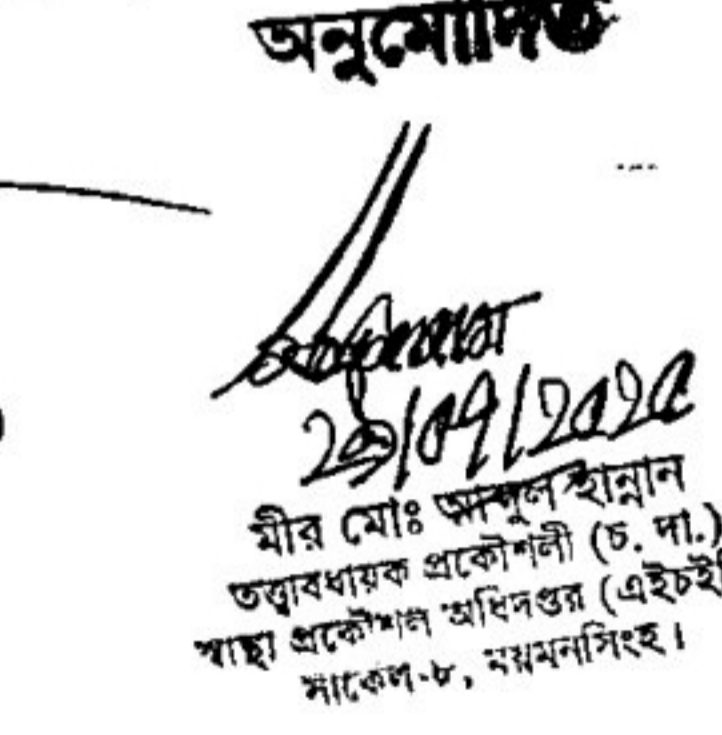 অনুমোদিত
মীর মোঃ আব্দুল হান্নান
তত্ত্বাবধায়ক প্রকৌশলী (চ. দা.)
স্বাস্থ্য প্রকৌশল অধিদপ্তর (এইচই
সার্কেল-৮, ময়মনসিংহ।